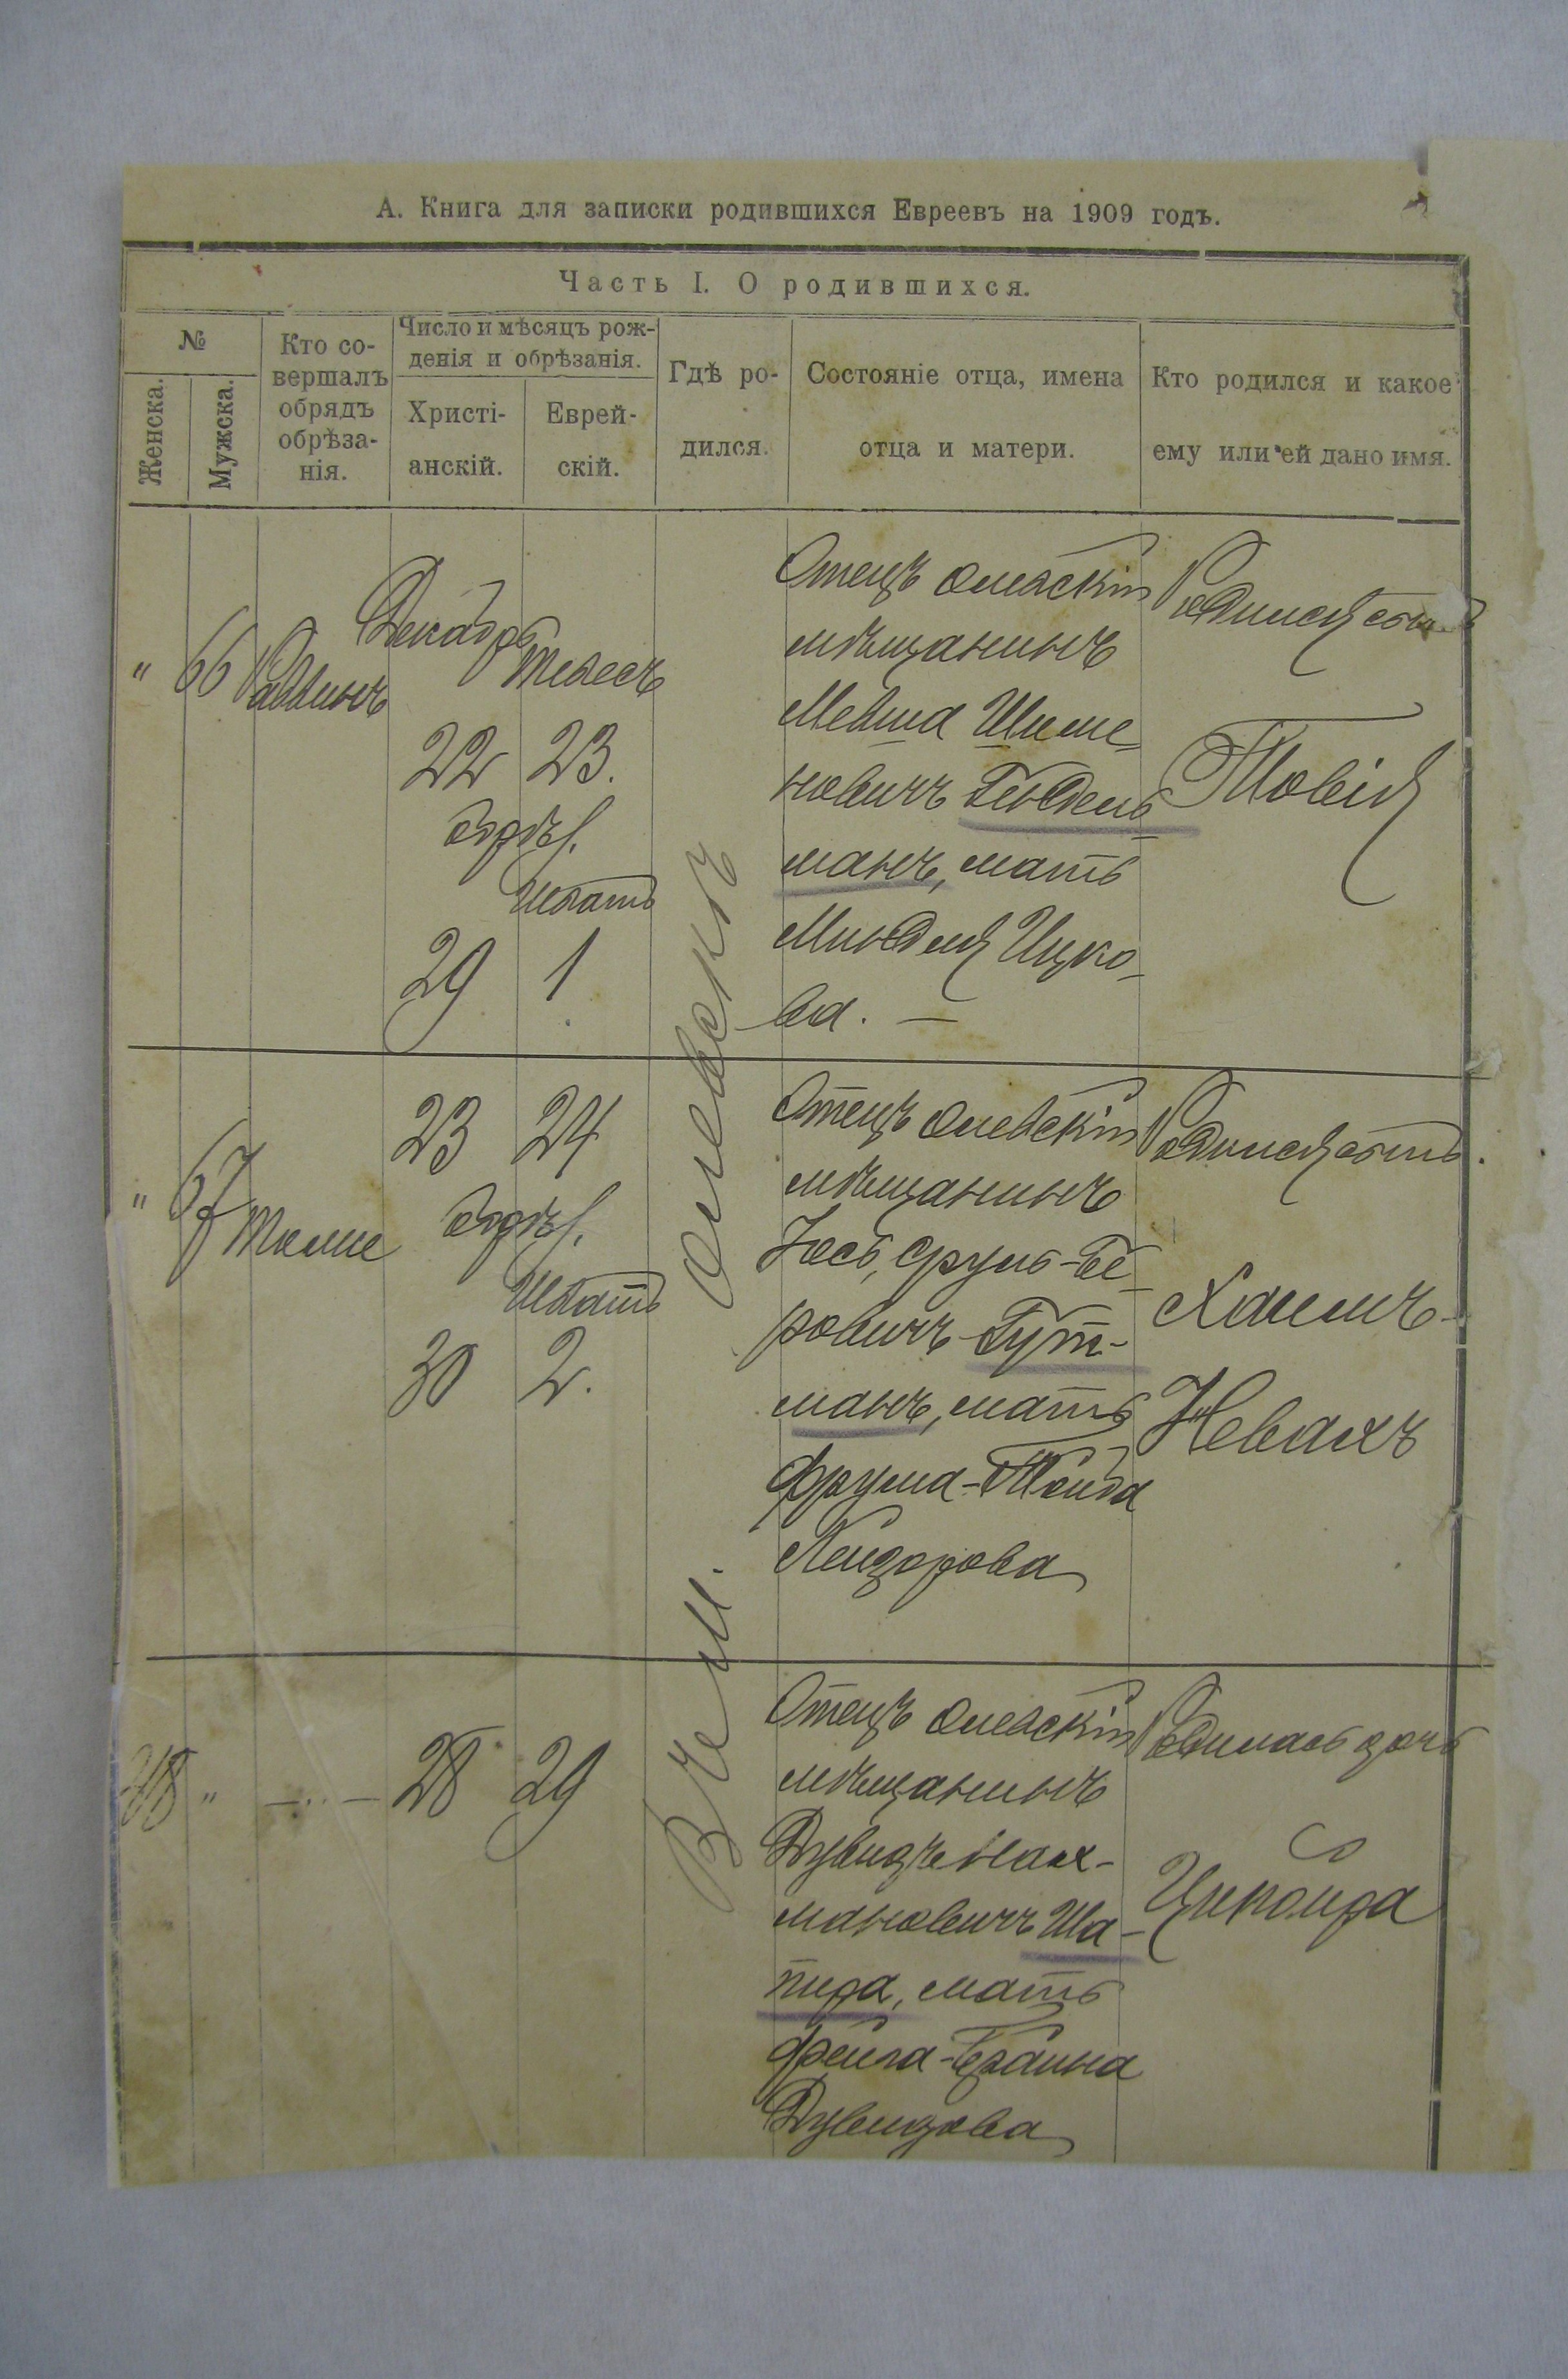 А. Книга для записки родившихся Евреевъ на 1909 годъ.
Часть I. О родившихся.
№
Женска.
Мужска.
Кто со-
вершалъ
обрядъ
обрѣза-
нія.
Число и мѣсяцъ рож-
денія и обрѣзанія.
Христі-
анскій.
Еврей-
скій.
Гдѣ ро-
дился.
Состояніе отца, имена
отца и матери.
Кто родился и какое
ему или ей дано имя.
" 66 Раввинъ
Декабрь
Тевесъ
22 23.
обрѣз.
Шватъ
29 1
В м. Олевскъ
Отецъ олевскій
мѣщанинъ
Мевша Шиме-
новичъ Гендель-
манъ, мать
Миндля Ицко-
ва. —
Родился сынъ
Товія
" 67
23 24
обрѣз.
Шватъ
30 2.
Отецъ олевскій
мѣщанинъ
Іось, Сруль-Бе-
ровичъ Гут-
манъ, мать
Фрума-Тойба
Лейзорова
Родился сынъ.
Хаимъ-
Невахъ
"
28 29
Отецъ олевскій
мѣщанинъ
Дувидъ Нах-
мановичъ Ша-
пира, мать
Фейга-Браина
Дувидова
Родилась дочь
Ципойра